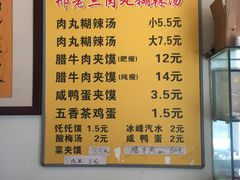 祁老三肉丸糊辣汤
肉丸糊辣汤 小5.5元
肉丸糊辣汤 大7.5元
腊牛肉夹馍(肥瘦) 12元
腊牛肉夹馍(纯瘦) 14元
咸鸭蛋夹馍 3.5元
五香茶鸡蛋 1.5元
饦饦馍 1.5元 冰峰汽水 2元
酸梅汤 2元 咸鸭蛋 2元
菜夹馍 3.5元 腊牛肉 60元